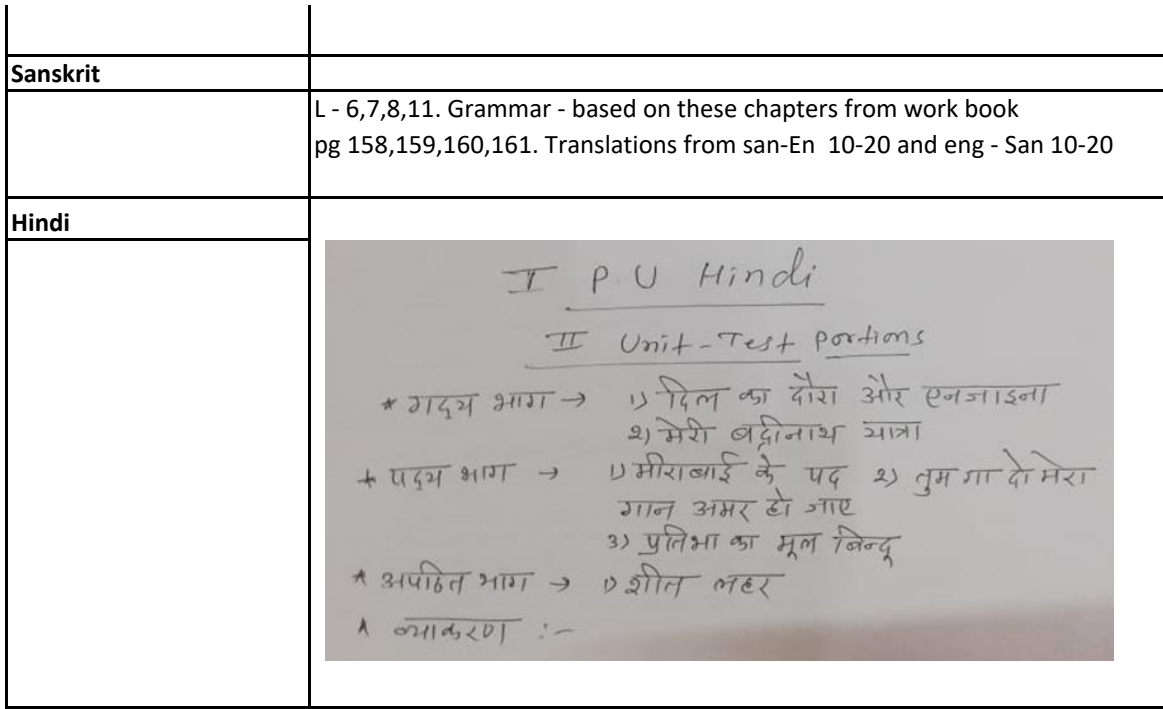 Sanskrit
L - 6,7,8,11. Grammar - based on these chapters from work book
pg 158,159,160,161. Translations from san-En 10-20 and eng - San 10-20
Hindi
I P.U Hindi
II Unit-Test Portions
* गद्य भाग → 1) दिल का दौरा और एनजाइना
2) मेरी बद्रीनाथ यात्रा
* पद्य भाग → 1) मीराबाई के पद 2) तुम गा दो मेरा
गान अमर हो जाए
3) प्रतिभा का मूल बिन्दू
* अपठित भाग → 1) शीत लहर
* व्याकरण :-